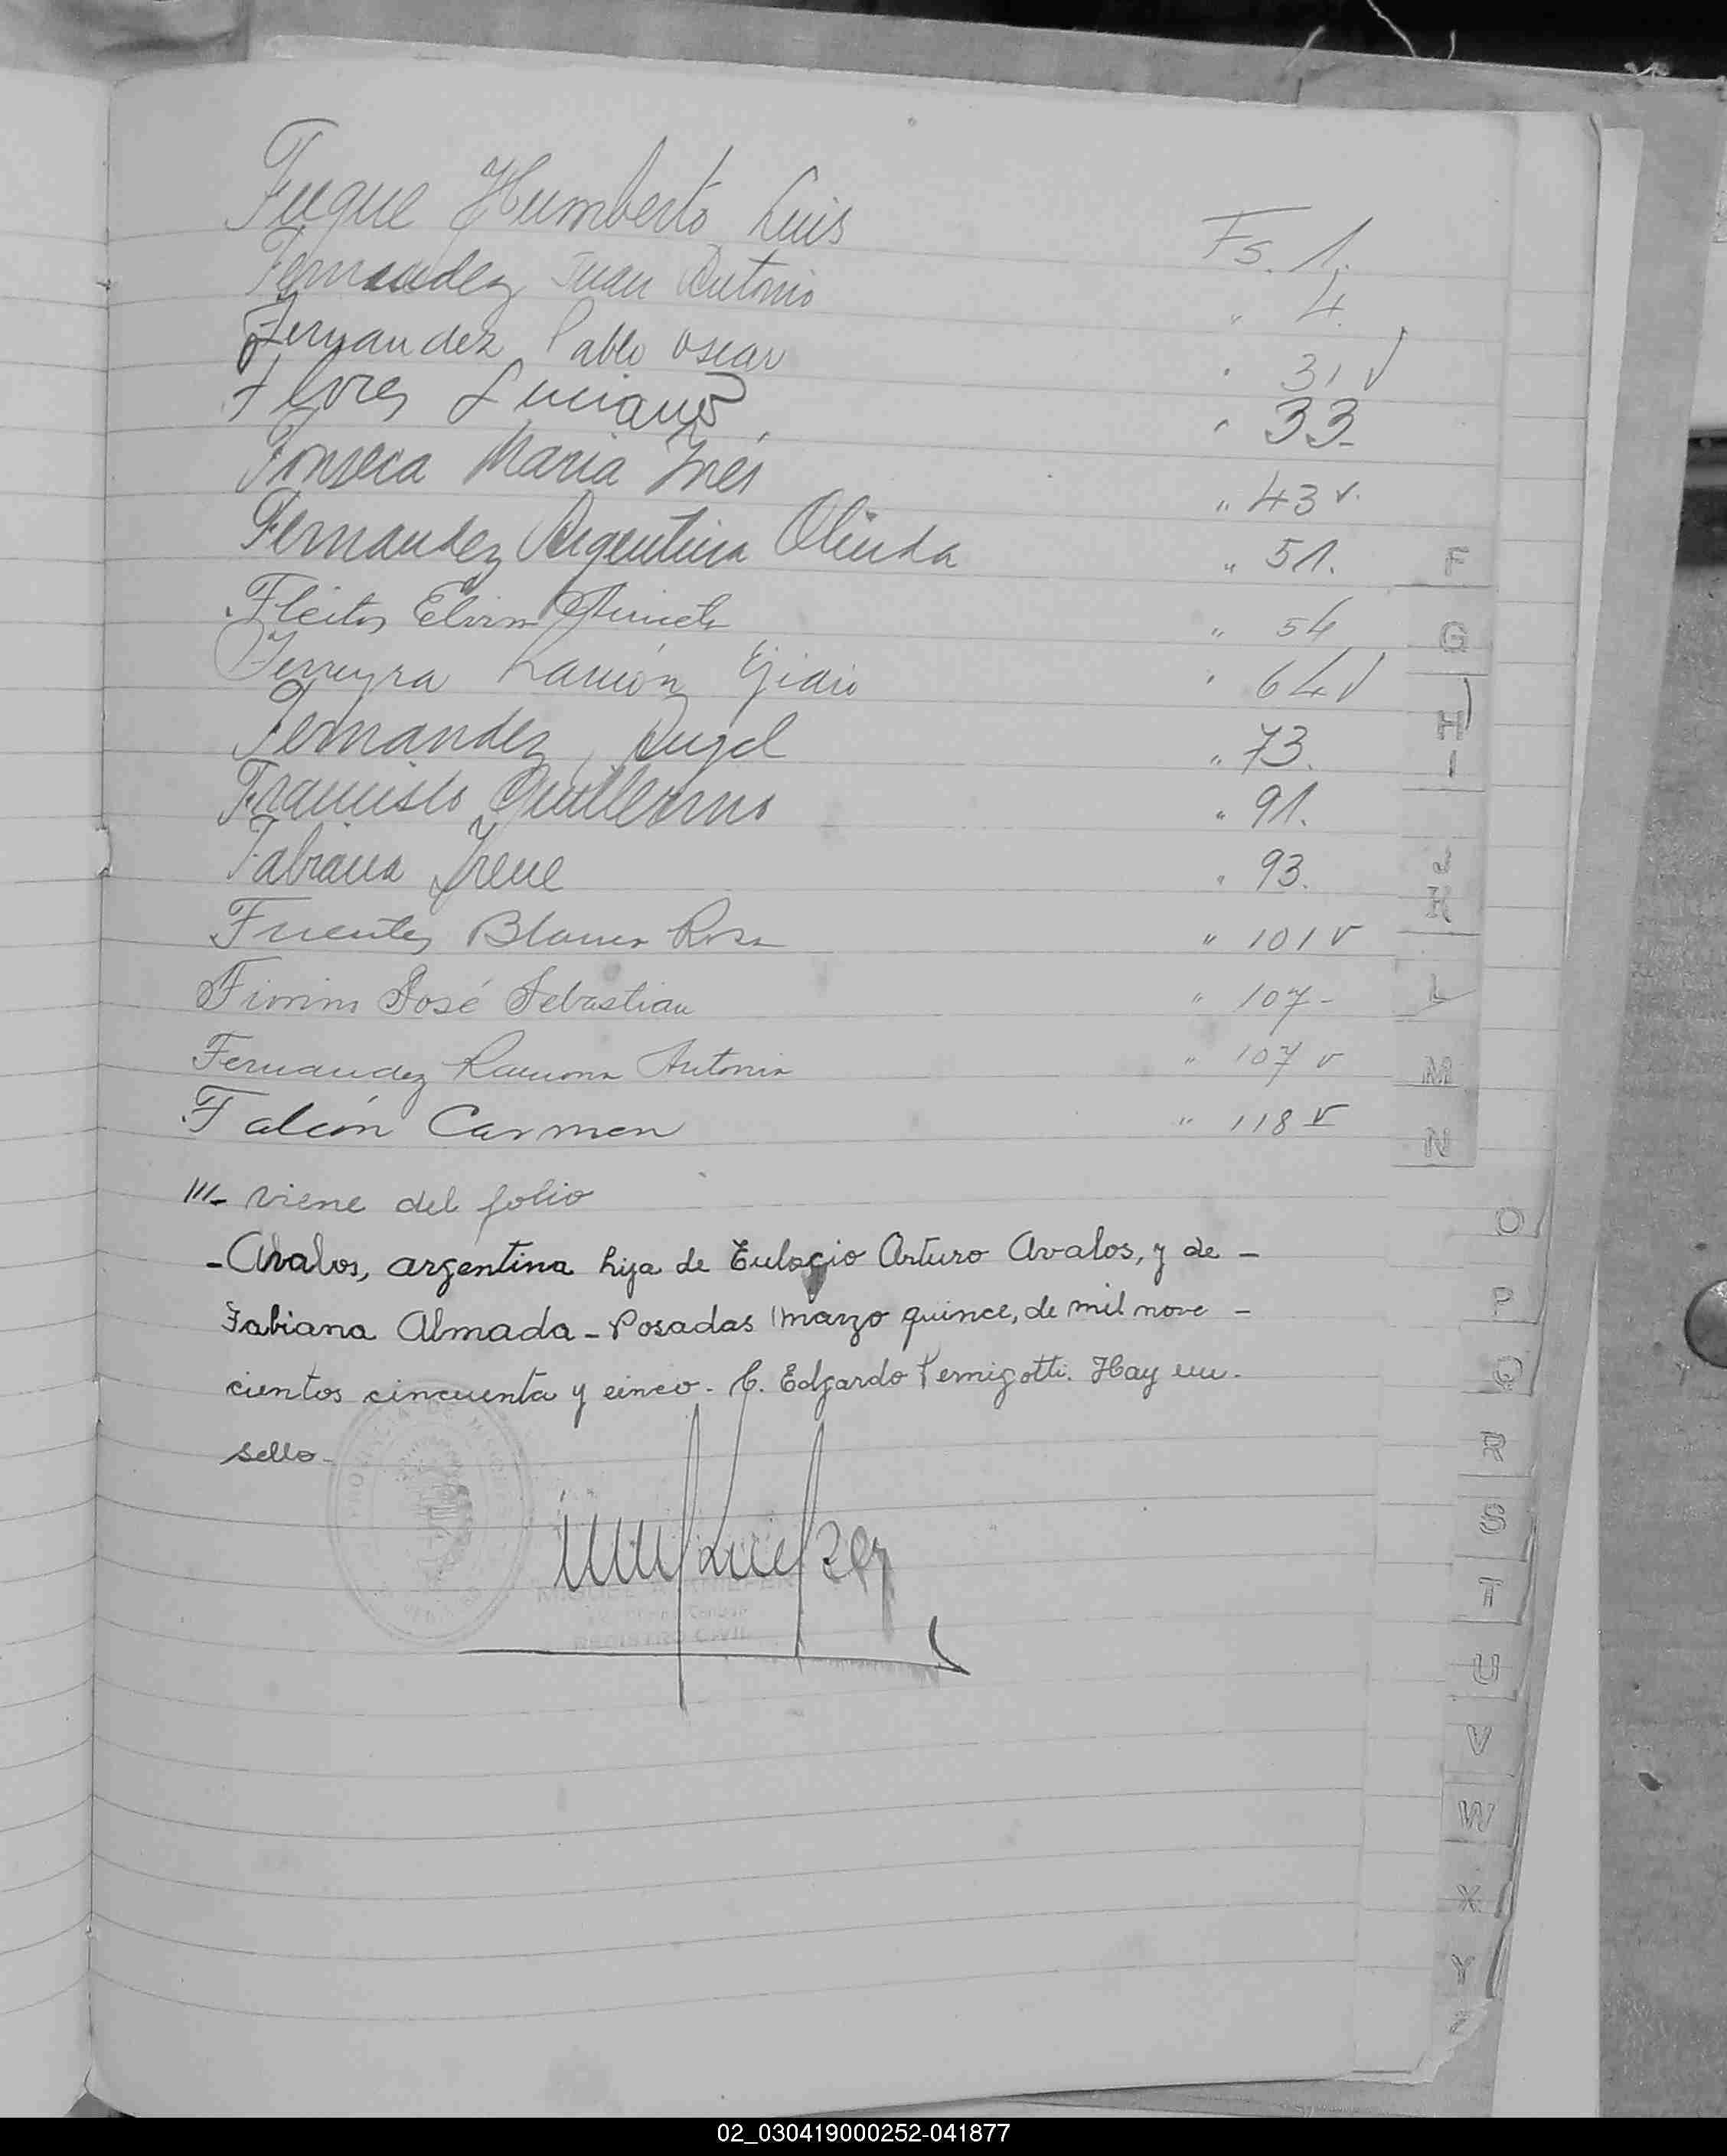 Fuque Humberto Luis Fs. 1.
Fernandez Juan Antonio " 4.
Fernandez Pablo Oscar " 31 v
Flores Luciano " 33-
Fonseca Maria Inés " 43 v.
Fernandez Argentina Olinda " 51.
Fleitas Elvira " 54
Ferreyra Ramón Ejidio " 64 v
Fernandez, Angel " 73.
Francisco Guillermo " 91.
Fabiana Irene " 93.
Fuentes Blanca Rosa " 101 v
José Sebastian " 107-
Fernandez Ramona Antonia " 107 v
Falcón Carmen " 118 v
///- viene del folio
-Avalos, argentina hija de Eulogio Arturo Avalos, y de -
Fabiana Almada - Posadas marzo quince, de mil nove -
cientos cincuenta y cinco - C. Edgardo Pernigotti. Hay un -
sello -
REGISTRO CIVIL
F
G
H
I
J
K
L
M
N
O
P
Q
R
S
T
U
V
W
X
Y
Z
02_030419000252-041877